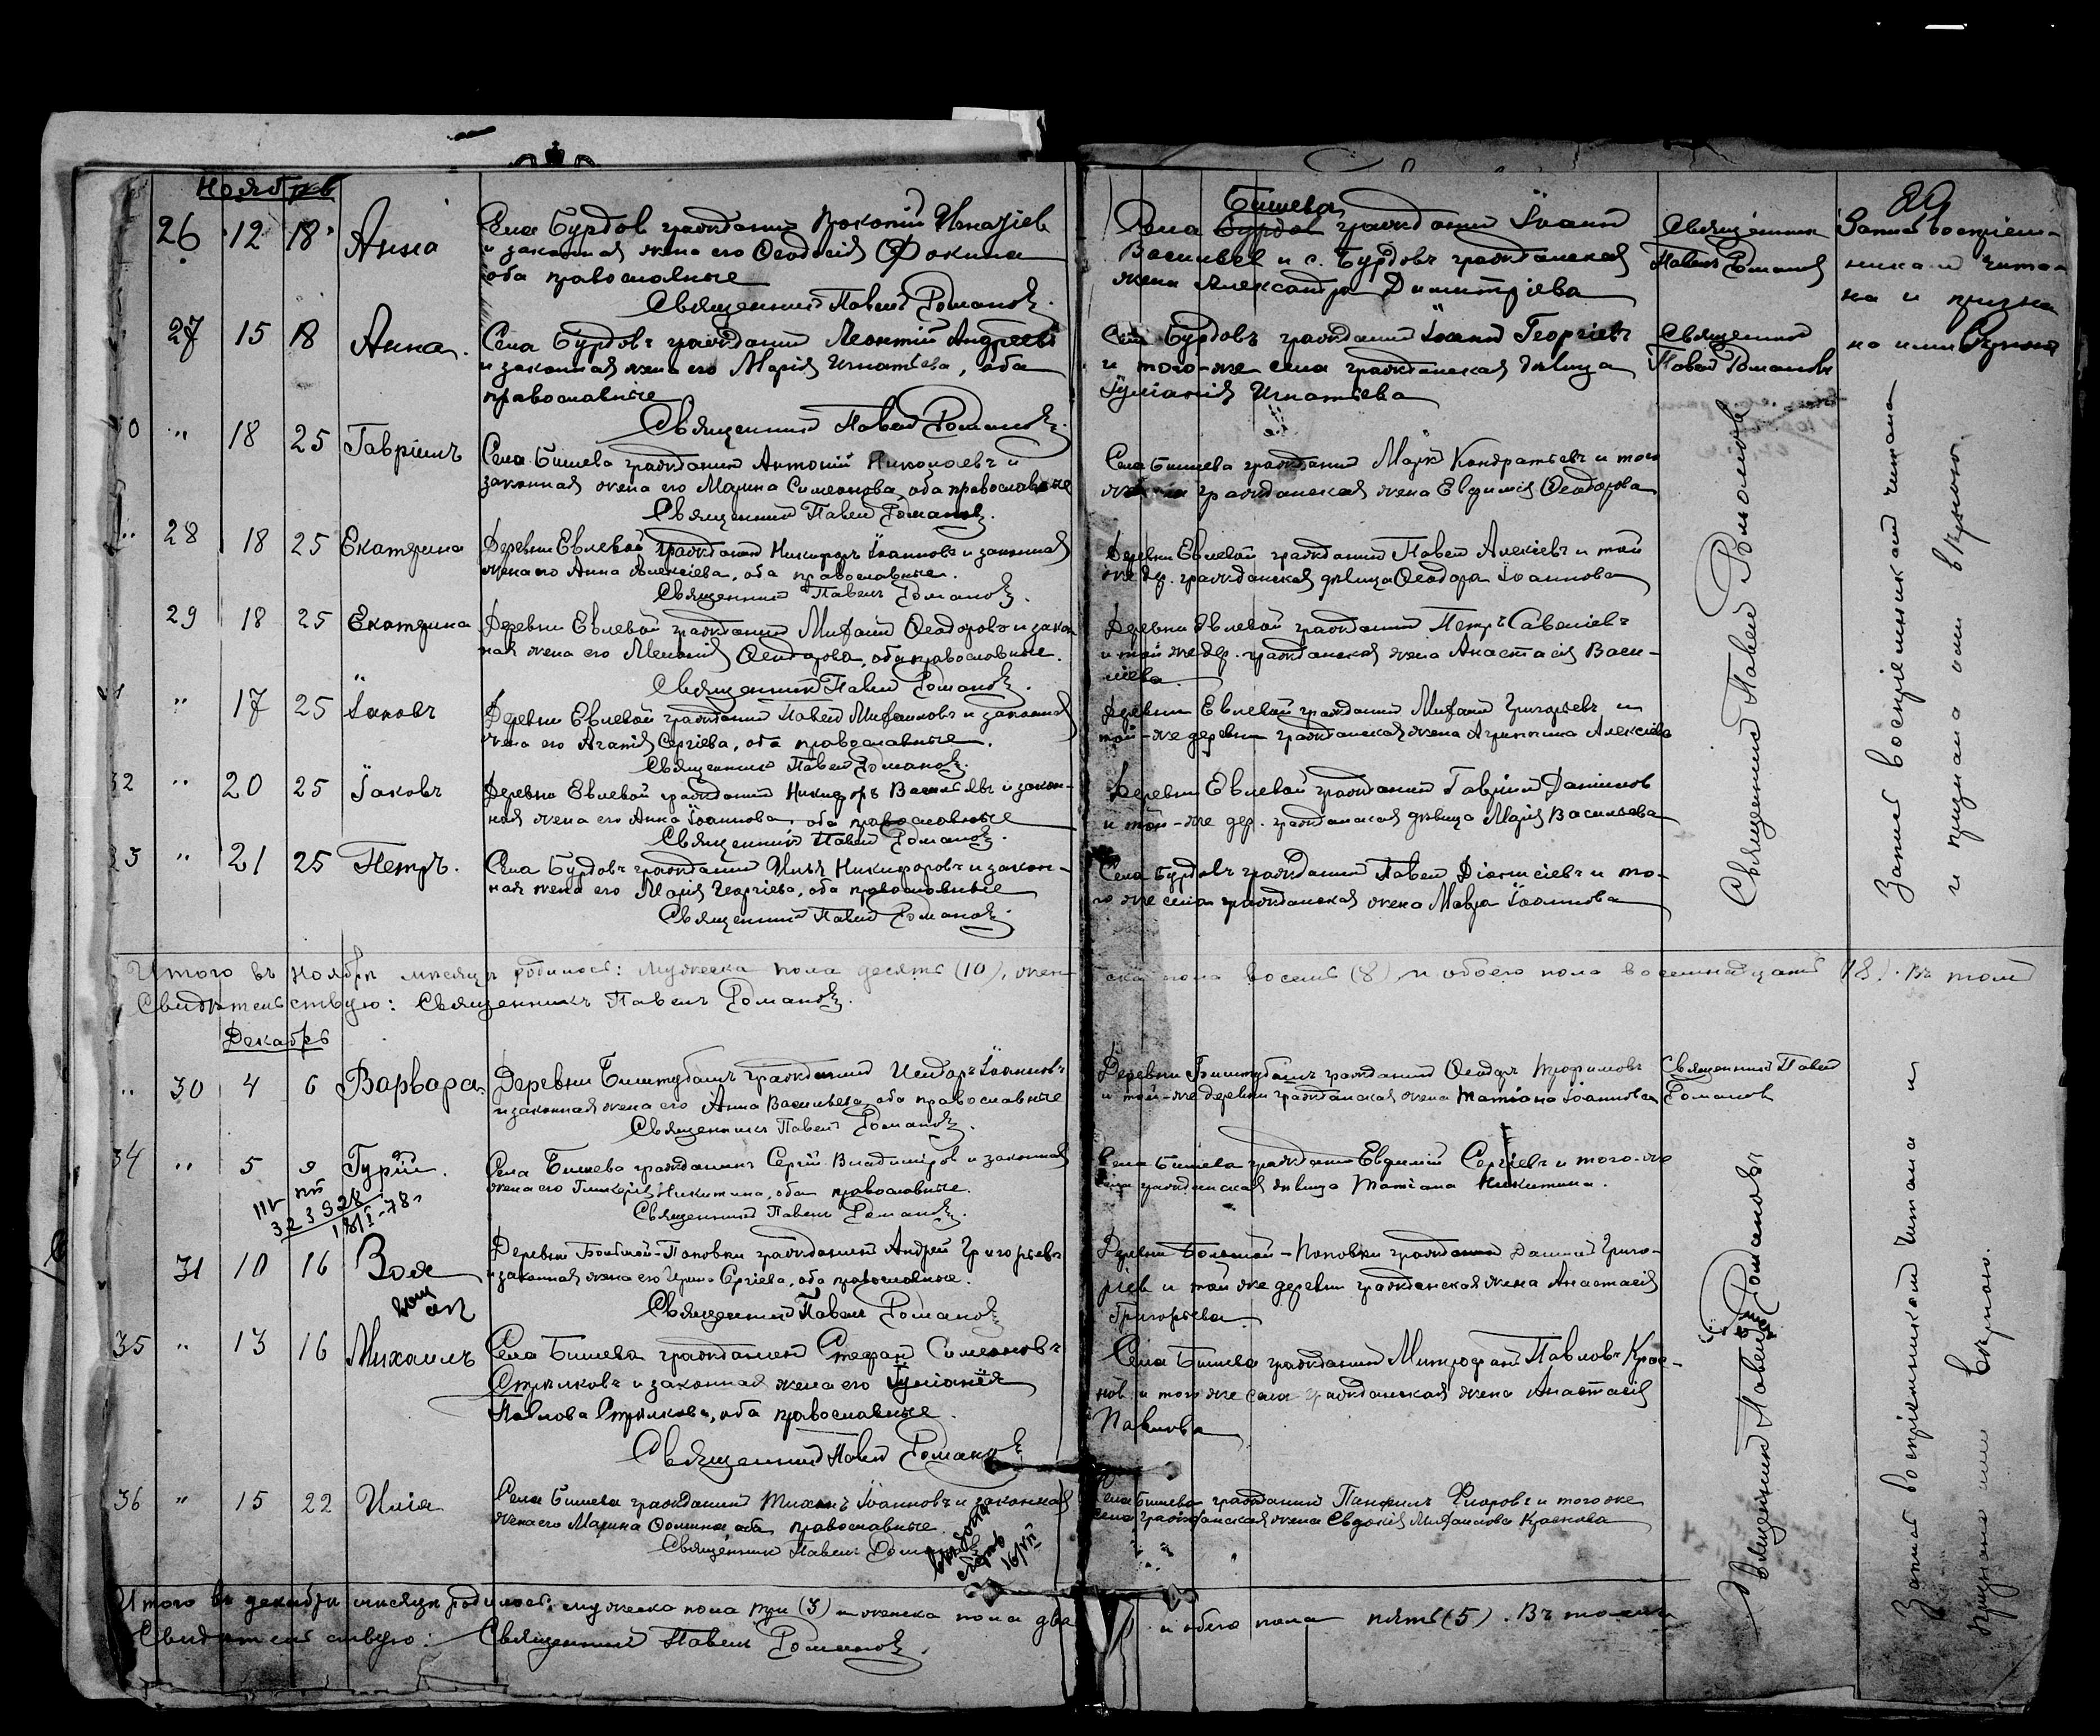 Ноябрь
26 12 18 Анна
Села Бурдов гражданин Прокопий Игнатіев
и законная жена его Феодосія Фокина
оба православные
Священник Павел Романов.
Бишева
Села Бурдов гражданин Іоанн
Васильев и с. Бурдовъ гражданская
жена Александра Димитріева
Священник
Павел Романов
Запись воспріем-
никам чита-
на и призна
на ими
27 15 18 Анна.
Села Бурдовъ гражданин Леонтій Андреевъ
и законная жена его Марія Игнатьева, оба
православные
Священник Павел Романов.
Села Бурдовъ гражданин Іоанн Георгіевъ
и того-же села гражданская дѣвица
Іуліанія Игнатьева
Священник
Павел Романовъ
" 18 25 Гавріилъ
Села Бишева гражданин Антоній Николаевъ и
законная жена его Марина Симеонова, оба православные
Священник Павел Романов.
Села Бишева гражданин Марк Кондратьевъ и того
гражданская жена Евфимія Феодорова
" 28 18 25 Екатерина
Деревни Евлевой гражданин Никифоръ Іоанновъ и законная
жена его Анна Алексіева, оба православные.
Священник Павелъ Романов.
Деревни Евлевой гражданин Павел Алексіевъ и той
же дер. гражданская дѣвица Феодора Іоаннова
29 18 25 Екатерина
Деревни Евлевой гражданин Михаил Феодоровъ и закон
ная жена его Меланія Феодорова, оба православные.
Священник Павел Романов.
Деревни Евлевой гражданин Петръ Савеліевъ
и той же дер. гражданская жена Анастасія Васи-
льева
" 17 25 Іаковъ
Деревни Евлевой гражданин Павел Михаиловъ и законная
жена его Агапія Сергіева, оба православные.
Священник Павел Романов.
Деревни Евлевой гражданин Михаил Григорьевъ и
той-же деревни гражданская жена Агриппина Алексіева
32 " 20 25 Іаковъ
Деревни Евлевой гражданин Никифоръ Васильевъ и закон-
ная жена его Анна Іоаннова, оба православные
Священник Павел Романов.
Деревни Евлевой гражданин Гавріил Даниилов
и той-же дер. гражданская дѣвица Марія Васильева
" 21 25 Петръ.
Села Бурдовъ гражданин Илья Никифоровъ и закон-
ная жена его Марія Георгіева, оба православные
Священник Павел Романов.
Села Бурдовъ гражданин Павел Діонисіевъ и то-
го же села гражданская жена Мавра Іоаннова
Священник Павел Романов
Запись воспріемникам читана
и признана ими вѣрною.
Итого въ Ноябрѣ мѣсяцѣ родилось: мужеска пола десять (10), жен
ска пола восемь (8) и обоего пола восемнадцать (18). Въ том
Свидѣтельствую: Священникъ Павелъ Романов.
Декабрь
" 30 4 6 Варвара
Деревни гражданин Исидоръ Іоанновъ
и законная жена его Анна Васильева, оба православные
Священникъ Павел Романов.
Деревни гражданин Феодоръ Трофимовъ
и той-же деревни гражданская жена Татіана Іоаннова
Священник Павел
Романов
34 " 5 9 Гурій.
323928
18/I-78
Села Бишева гражданинъ Сергій Владиміров и законная
жена его Гликерія Никитина, оба православные.
Священник Павелъ Романов.
Села Бишева гражданин Евфимій Сергіевъ и того-же
села гражданская дѣвица Татіана Никитина.
31 10 16 Зоя
Деревни Большой-Поповки гражданин Андрей Григорьевъ
и законная жена его Ирина Сергіева, оба православные.
Священник Павел Романов.
Деревни Большой-Поповки гражданин Даниил Григо-
ріев и той же деревни гражданская жена Анастасія
Григорьева
35 " 13 16 Михаилъ
Села Бишева гражданин Стефан Симеоновъ
Стрѣлковъ и законная жена его Іуліанія
Павлова Стрѣлкова, оба православные.
Священник Павел Романов
Села Бишева гражданин Митрофан Павловъ Крас-
нов и того же села гражданская жена Анастасія
Павлова
36 " 15 22 Илія
Села Бишева гражданин Іоанновъ и законная
жена его Марина Фомина, оба православные.
Священник Павелъ Романов
16/VII
Села Бишева гражданин Панфилъ Флоровъ и того же
села гражданская жена Евдокія Михаилова Краснова
Священник Павел Романовъ
Запись воспріемникам читана и
признана ими вѣрною.
Итого въ декабрѣ мѣсяцѣ родилось: мужеска пола три (3) и женска пола два
и обоего пола пять (5). Въ том
Свидѣтельствую: Священник Павелъ Романов.